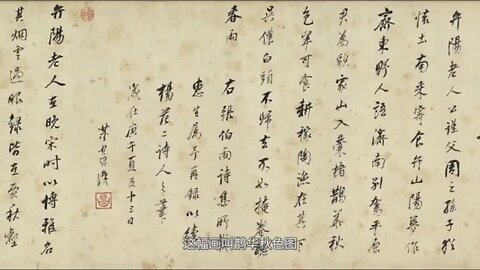 弁陽老人公謹父周之孫子猶
懷土南來寄食弁山陽夢作
齊東野人語濟南別駕平原
君為貌家山入囊楮鵲華秋
色翠可食耕稼陶漁在其下
吳儂白頭不歸去不如掩卷聽
春雨
右張伯雨詩集所
惠生屬予再錄以續
楊范二詩人之筆
歲在庚午夏五十三日
董其昌識
弁陽老人在晚宋時以博雅名
其烟雲過眼錄皆在賈秋壑
这幅画叫鹊华秋色图